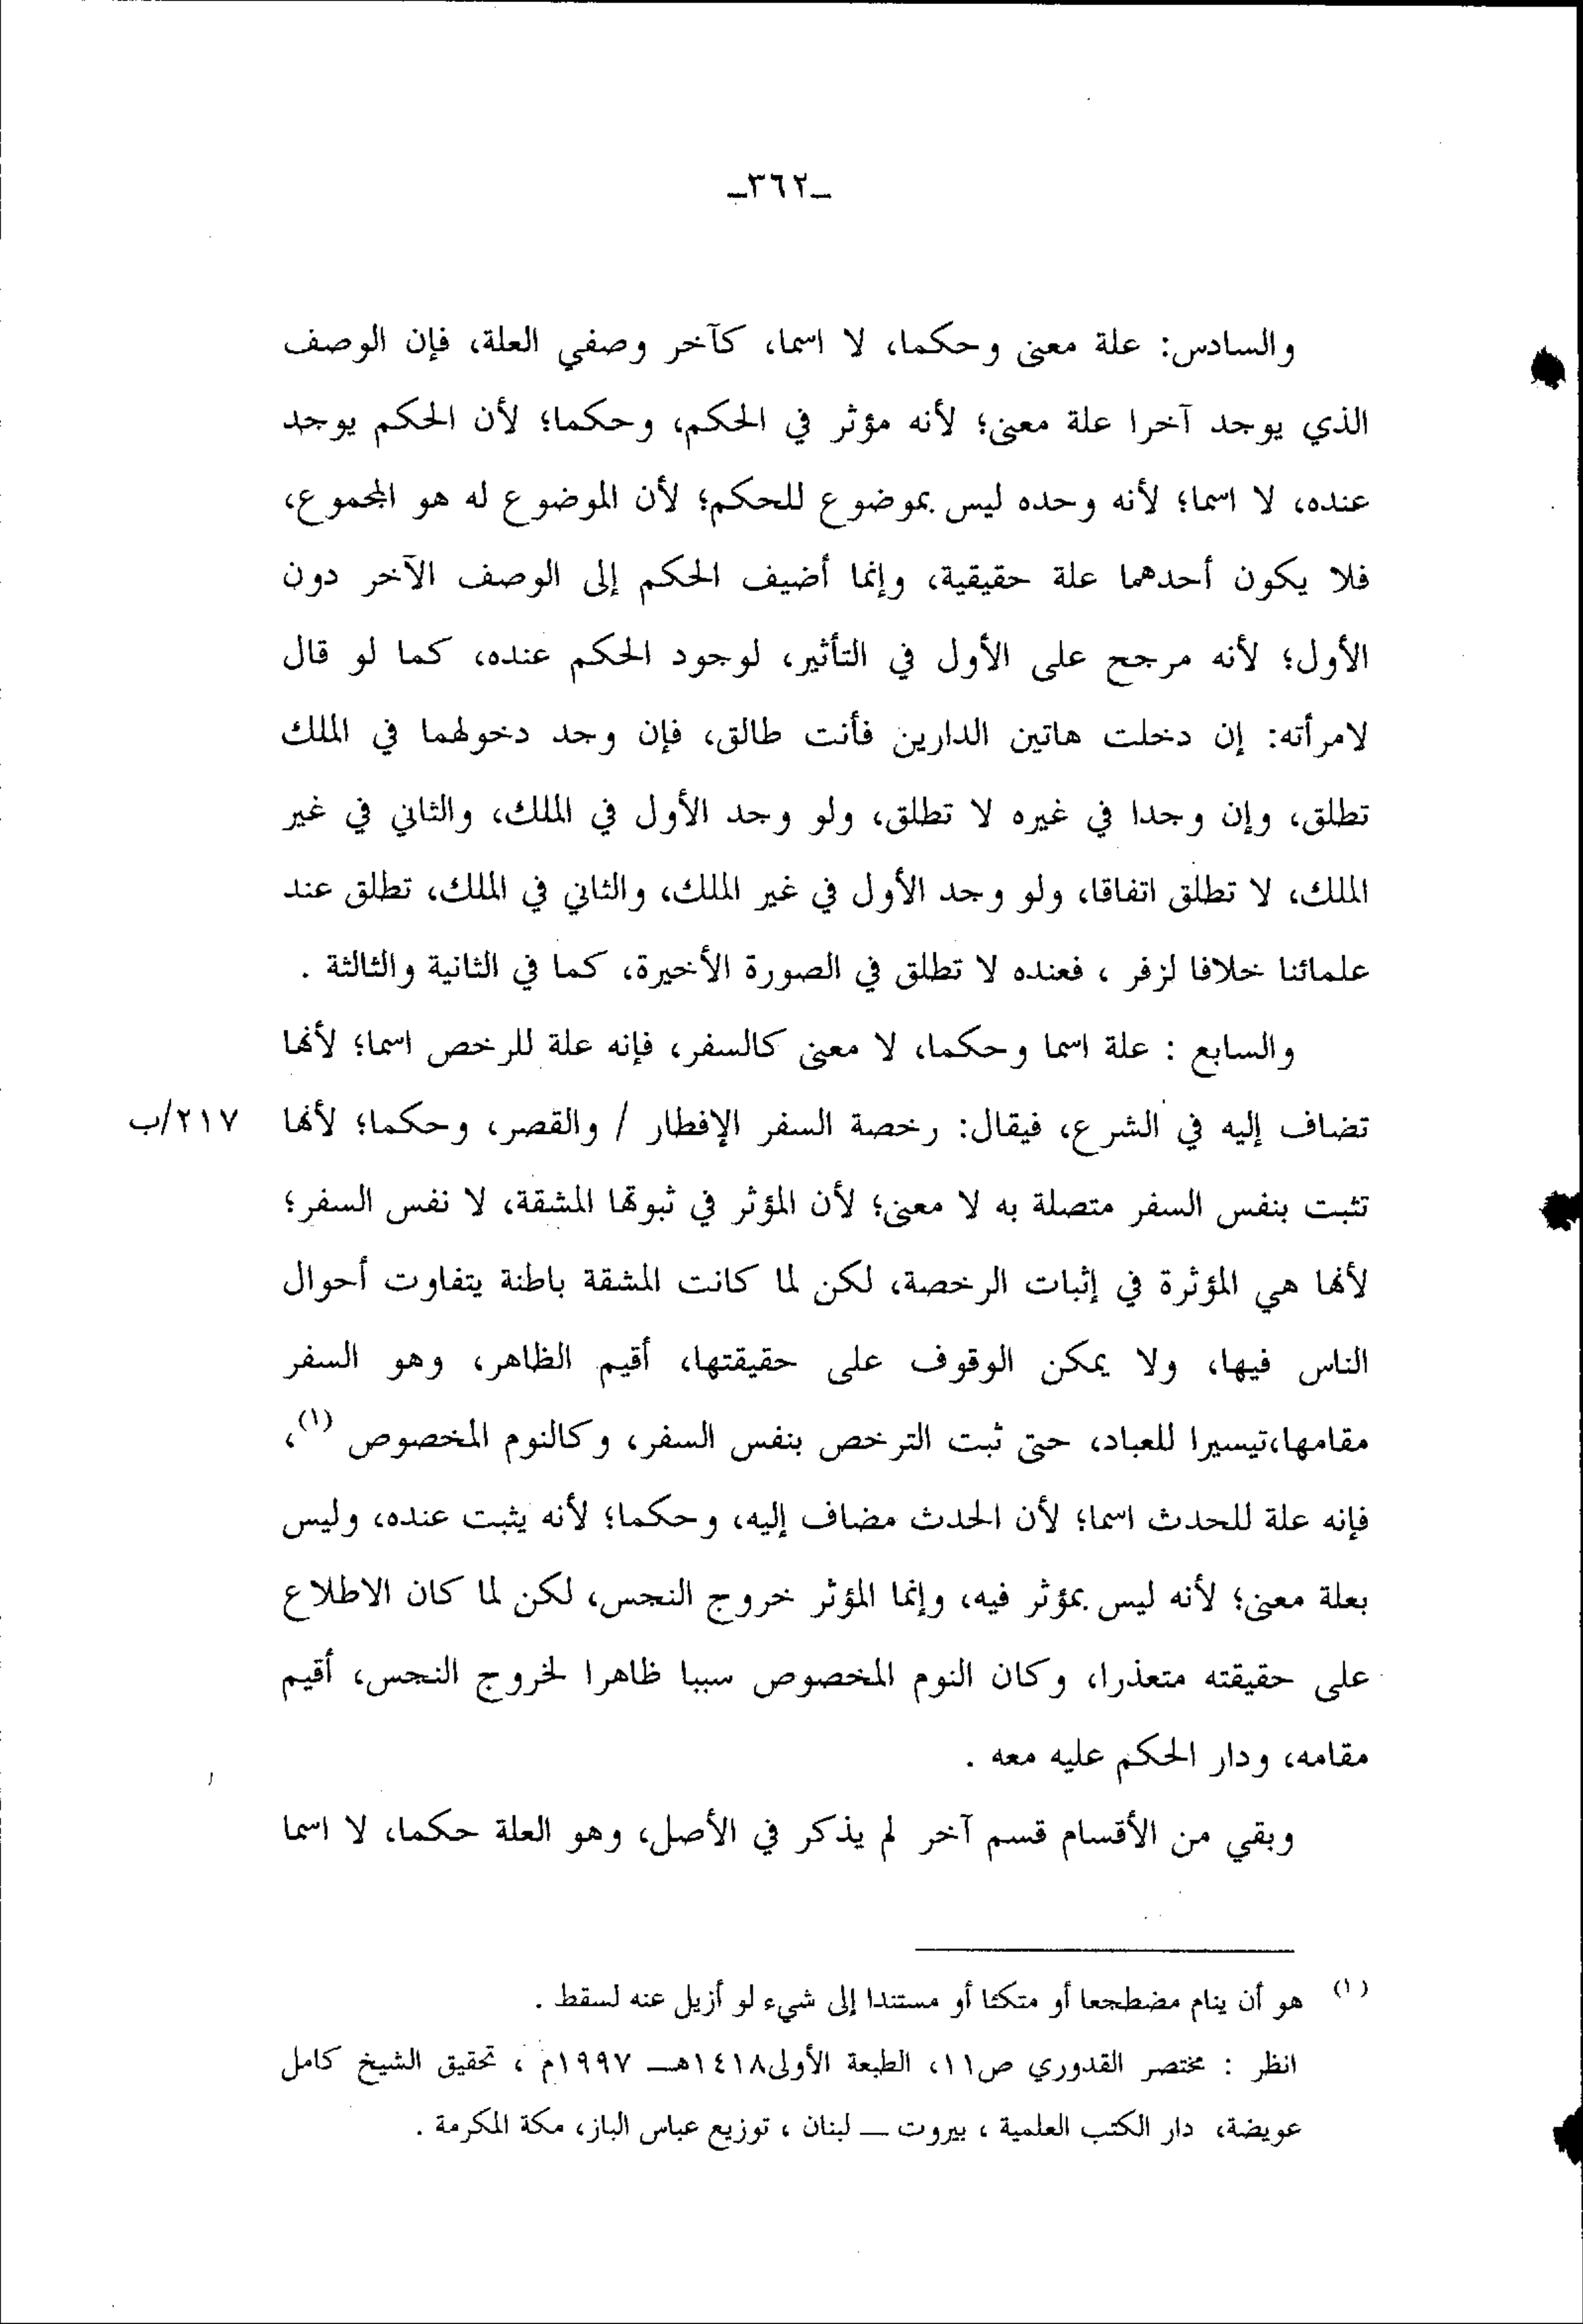 ـ٣٦٢ـ
والسادس: علة معنى وحكما، لا اسما، كآخر وصفي العلة، فإن الوصف
الذي يوجد آخرا علة معنى؛ لأنه مؤثر في الحكم، وحكما؛ لأن الحكم يوجد
عنده، لا اسما؛ لأنه وحده ليس بموضوع للحكم؛ لأن الموضوع له هو المجموع،
فلا يكون أحدهما علة حقيقية، وإنما أضيف الحكم إلى الوصف الآخر دون
الأول؛ لأنه مرجح على الأول في التأثير، لوجود الحكم عنده، كما لو قال
لامرأته: إن دخلت هاتين الدارين فأنت طالق، فإن وجد دخولهما في الملك
تطلق، وإن وجدا في غيره لا تطلق، ولو وجد الأول في الملك، والثاني في غير
الملك، لا تطلق اتفاقا، ولو وجد الأول في غير الملك، والثاني في الملك، تطلق عند
علمائنا خلافا لزفر ، فعنده لا تطلق في الصورة الأخيرة، كما في الثانية والثالثة .
والسابع : علة اسما وحكما، لا معنى كالسفر، فإنه علة للرخص اسما؛ لأنها
تضاف إليه في الشرع، فيقال: رخصة السفر الإفطار / والقصر، وحكما؛ لأنها ٢١٧/ب
تثبت بنفس السفر متصلة به لا معنى؛ لأن المؤثر في ثبوتها المشقة، لا نفس السفر؛
لأنها هي المؤثرة في إثبات الرخصة، لكن لما كانت المشقة باطنة يتفاوت أحوال
الناس فيها، ولا يمكن الوقوف على حقيقتها، أقيم الظاهر، وهو السفر
مقامها،تيسيرا للعباد، حتى ثبت الترخص بنفس السفر، وكالنوم المخصوص (١)،
فإنه علة للحدث اسما؛ لأن الحدث مضاف إليه، وحكما؛ لأنه يثبت عنده، وليس
بعلة معنى؛ لأنه ليس بمؤثر فيه، وإنما المؤثر خروج النجس، لكن لما كان الاطلاع
على حقيقته متعذرا، وكان النوم المخصوص سببا ظاهرا لخروج النجس، أقيم
مقامه، ودار الحكم عليه معه .
وبقي من الأقسام قسم آخر لم يذكر في الأصل، وهو العلة حكما، لا اسما
(١) هو أن ينام مضطجعا أو متكئا أو مستندا إلى شيء لو أزيل عنه لسقط .
انظر : مختصر القدوري ص١١، الطبعة الأولى١٤١٨هـــ ١٩٩٧م ، تحقيق الشيخ كامل
عويضة، دار الكتب العلمية ، بيروت ــ لبنان ، توزيع عباس الباز، مكة المكرمة .